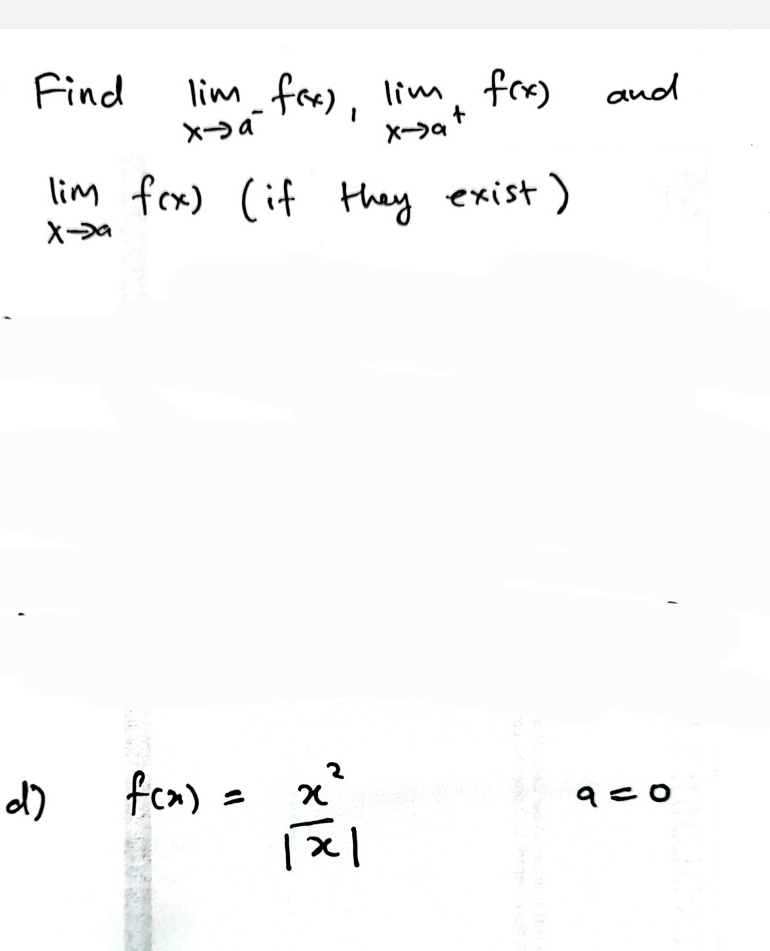 Find lim x→a⁻ f(x), lim x→a⁺ f(x) and
lim x→a f(x) (if they exist)
d) f(x) = x² / |x| a = 0